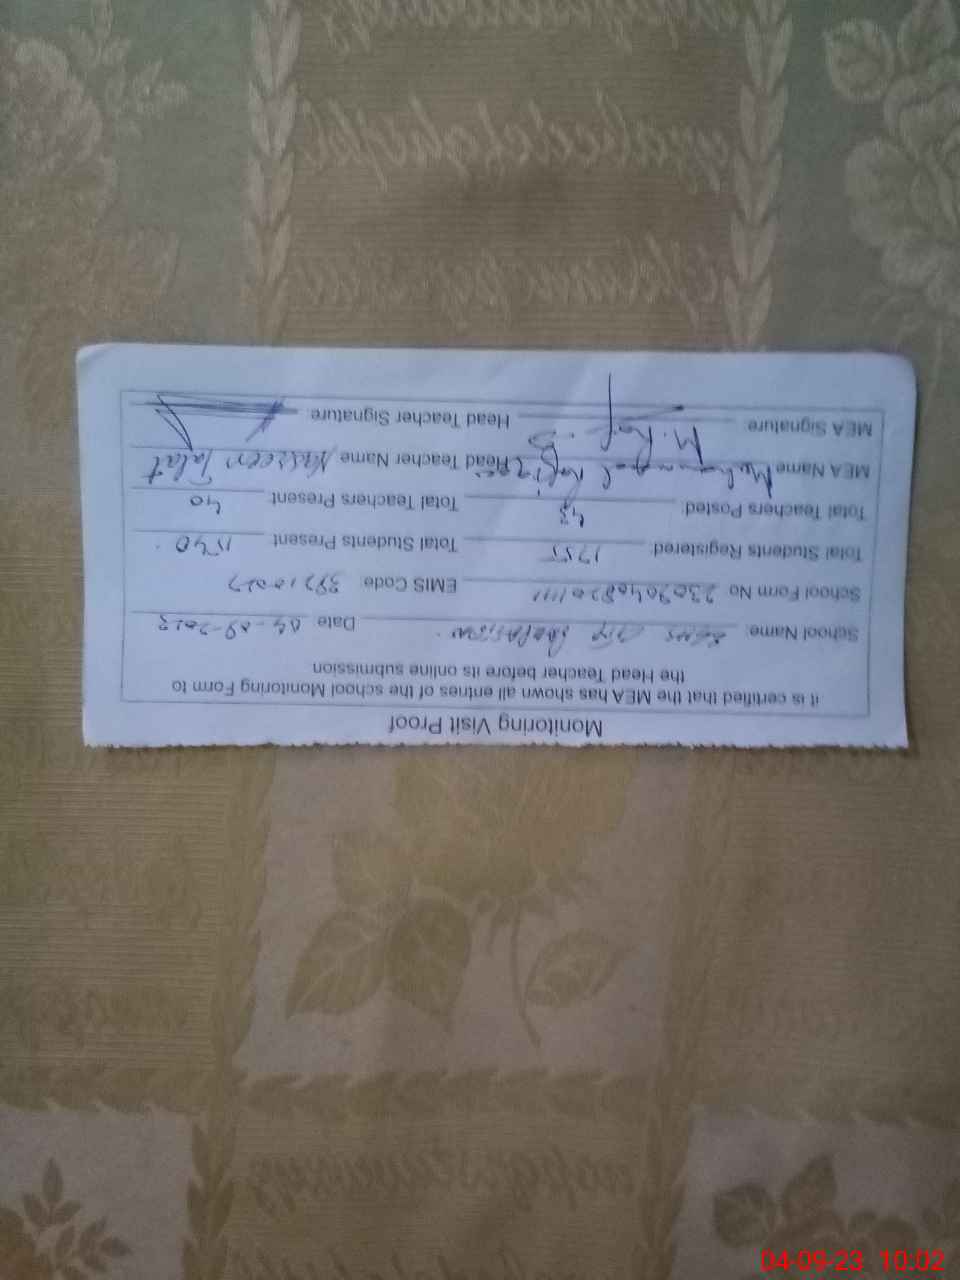 Monitoring Visit Proof
it is certified that the MEA has shown all entries of the school Monitoring Form to
the Head Teacher before its online submission
School Name: Date 04-09-2023
School Form No EMIS Code:
Total Students Registered: 1755 Total Students Present 1540
Total Teachers Posted: 43 Total Teachers Present 40
MEA Name Muhammad Rafiq Head Teacher Name Nasreen Talat
MEA Signature Head Teacher Signature:
04-09-23 10:02